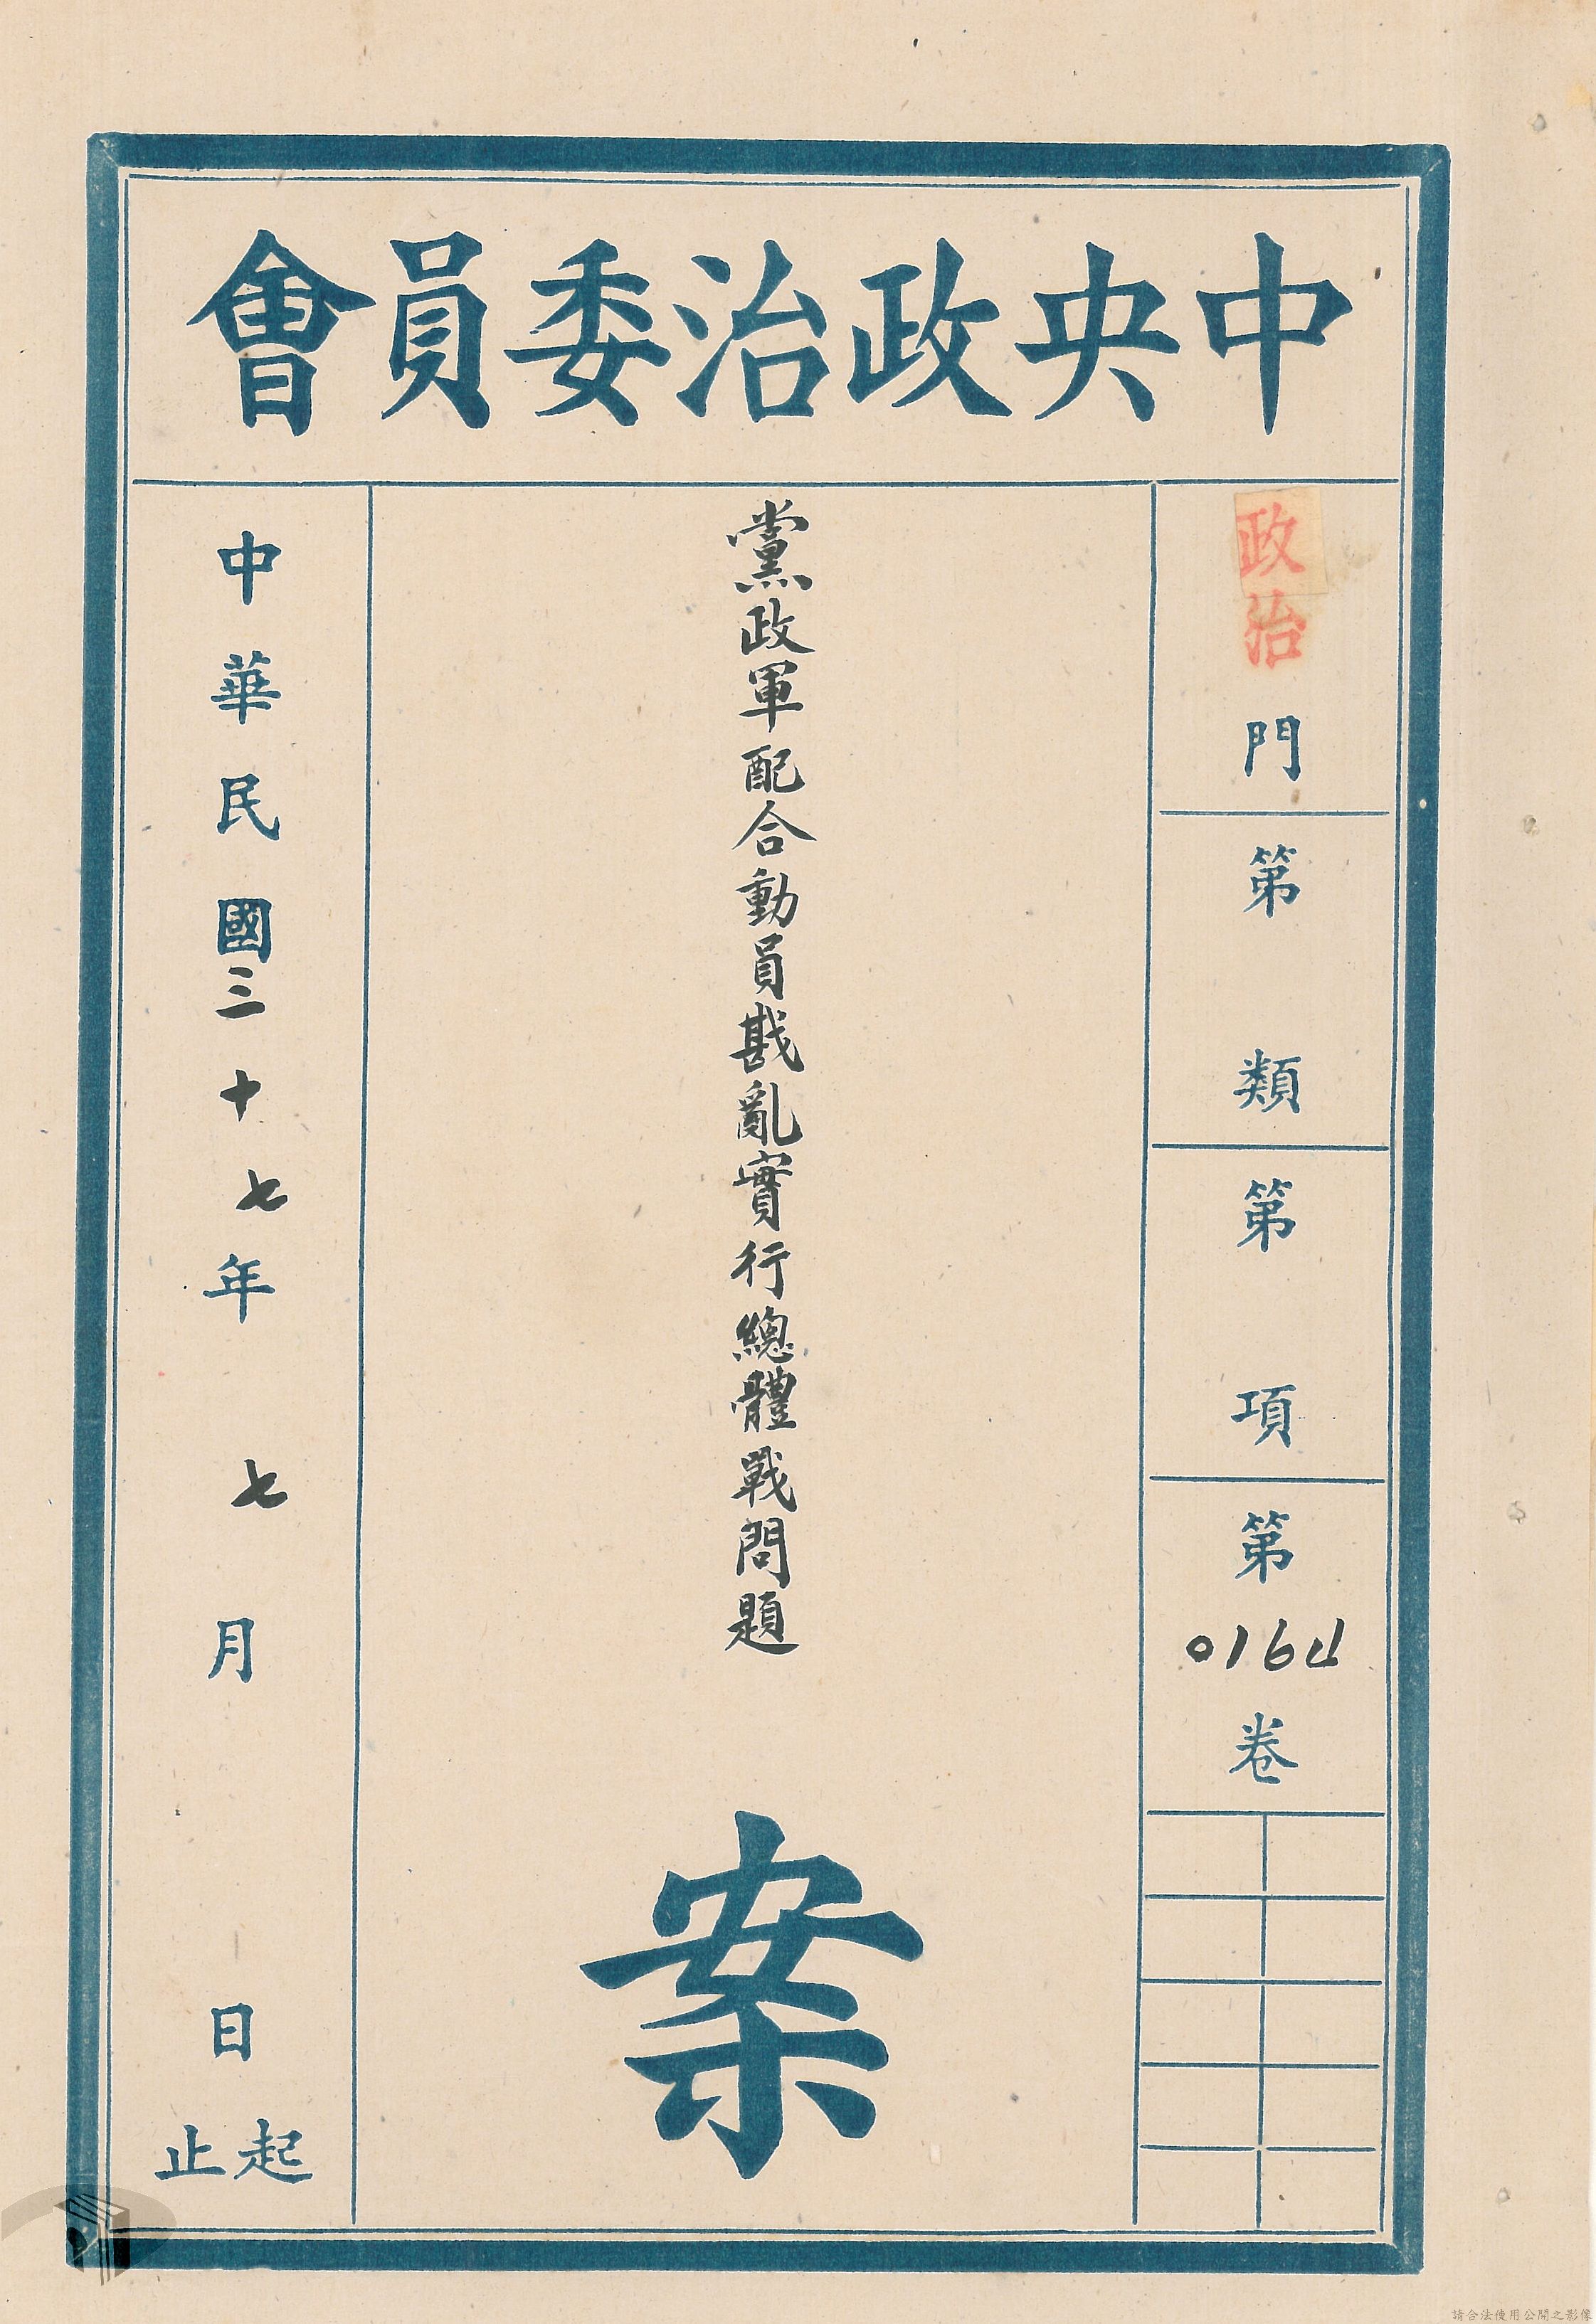 中央政治委員會
政治門
第 類
第 項
第0164卷
黨政軍配合動員戡亂實行總體戰問題
案
中華民國三十七年七月 日起止
請合法使用公開之影像